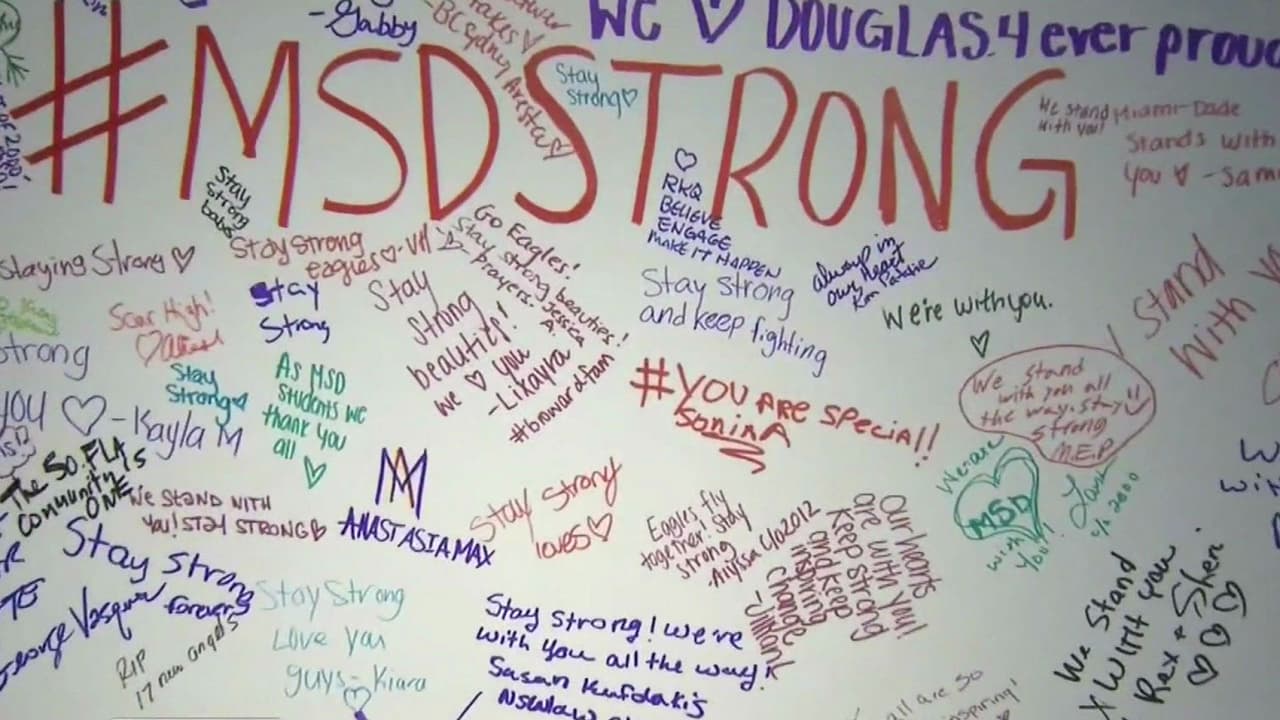 -Gabby
WE ♡ DOUGLAS 4ever proud
takes ♡
-BC Sydney Aresta ♡
#MSDSTRONG
Stay
Strong♡
We stand
with you!
Miami-Dade
Stands with
you ♡ -Sam
Stay
Strong
babes
♡
RKQ
BELIEVE
ENGAGE
MAKE IT HAPPEN
Staying Strong ♡
Stay Strong
eagles ♡ -VM
Go Eagles!
Stay strong beauties!
prayers. Jessica
A.
always in
our heart
Stay
Strong
Stay
Strong
beauties!
we ♡ you
-Likayra
#browardfam
Stay strong
and keep fighting
We're with you.
♡
I stand
with
strong
Stay
Strong
As MSD
Students we
thank you
all
♡
#YOU ARE SPECIAL!!
We stand
with you all
the way. Stay
strong
M.E.P
YOU ♡ -Kayla M
The So. FLA
Community IS
ONE
We STAND WITH
You! STAY STRONG♡
ANASTASIA MAX
Stay Strong
loves♡
Eagles fly
together! Stay
strong
Alyssa c/o 2012
Our hearts
are with you!
Keep strong
and keep
inspiring
change
-Jillian
We are
MSD
with
you!
c/o 2000
Stay Strong
forever
George Vasquez
RIP
17 new angels
Stay Strong
Love you
guys - Kiara
Stay Strong! We're
with you all the way!
Susan
We Stand
With you
Rex + Sheri
♡♡♡
all are so
inspiring!